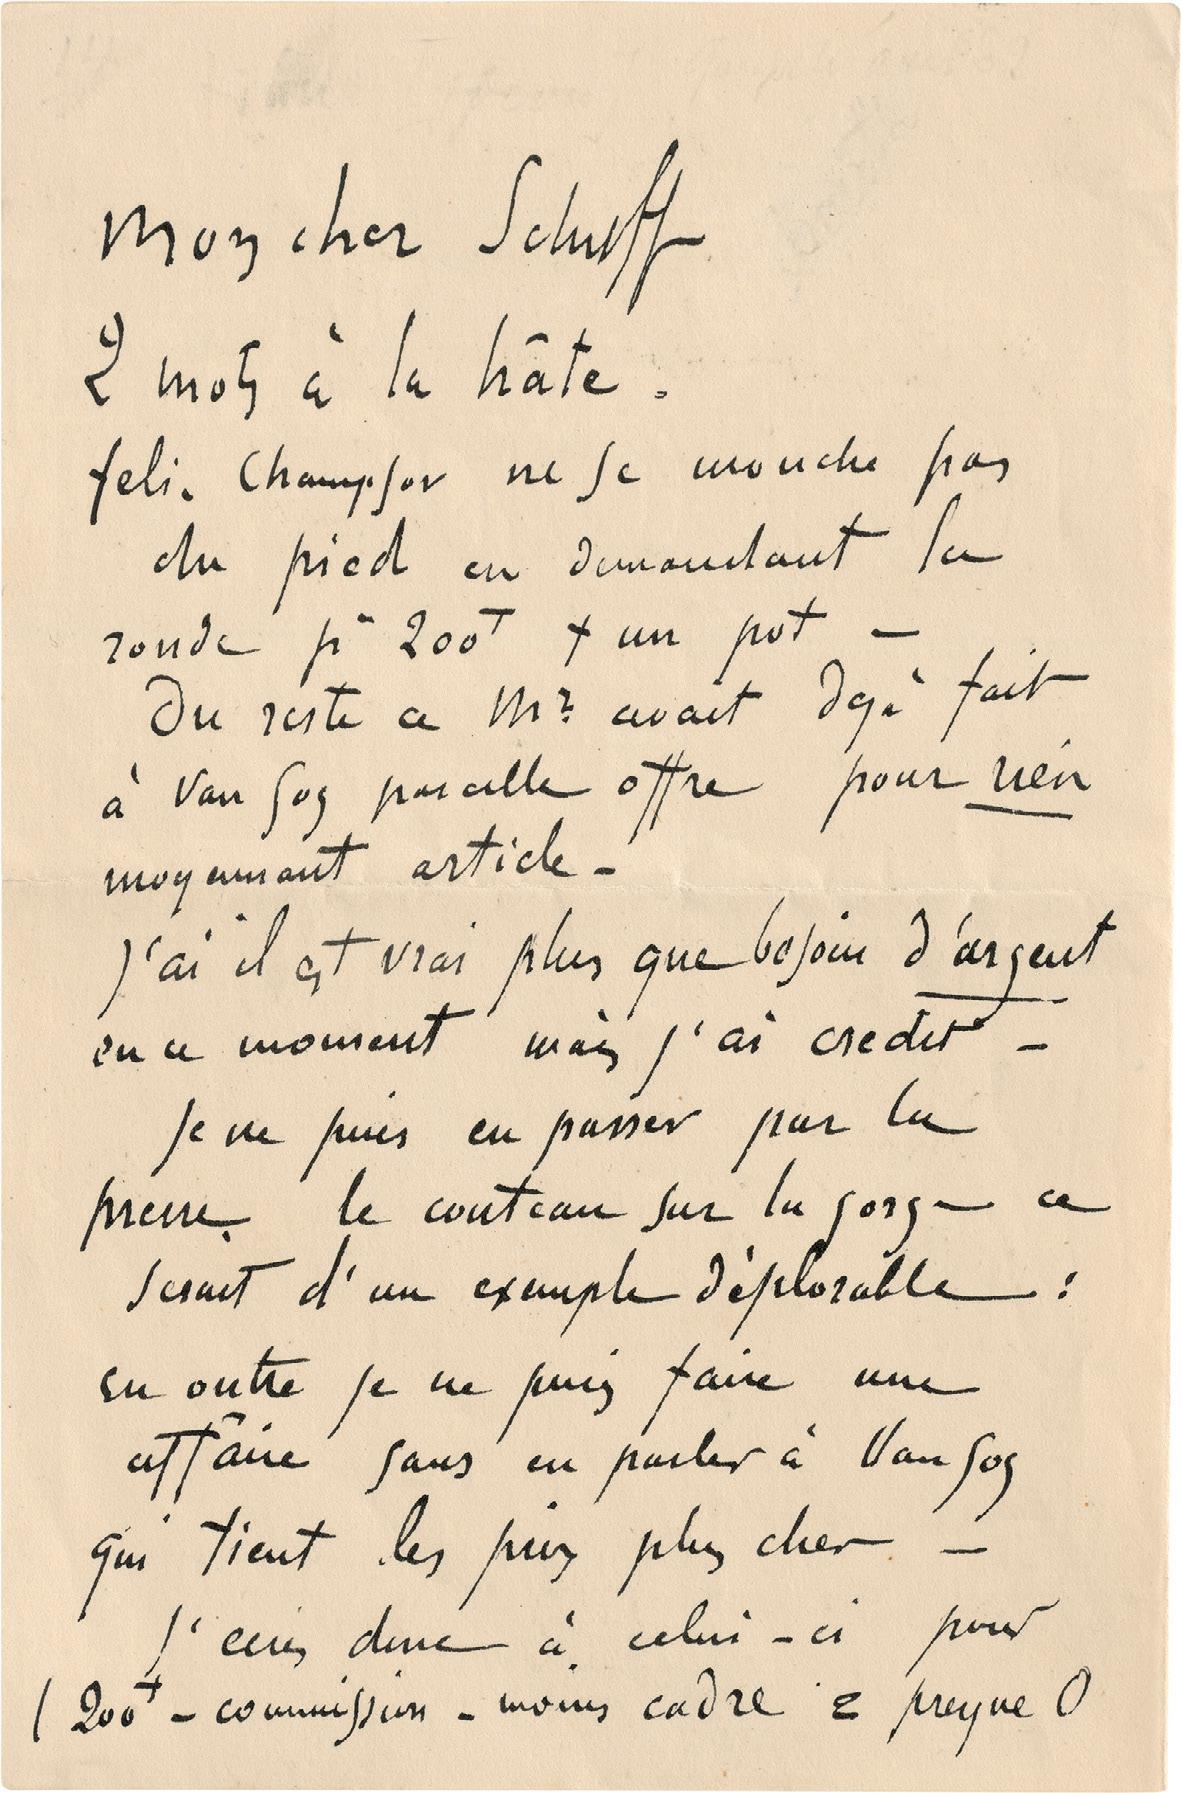 Mon cher Schuff
2 mots à la hâte.
feli. Champsor ne se mouche pas
du pied en demandant la
ronde pr 200f + un pot –
Du reste ce Mr avait dejà fait
à Van Gog pareille offre pour rien
moyennant article –
J'ai il est vrai plus que besoin d'argent
en ce moment mais j'ai credit –
Je ne puis en passer par la
presse, le couteau sur la gorge ce
serait d'un exemple déplorable :
en outre je ne puis faire une
affaire sans en parler à Van Gog
qui tient les prix plus cher –
J'ecris donc à celui-ci pour
( 200f – commission – moins cadre = presque 0